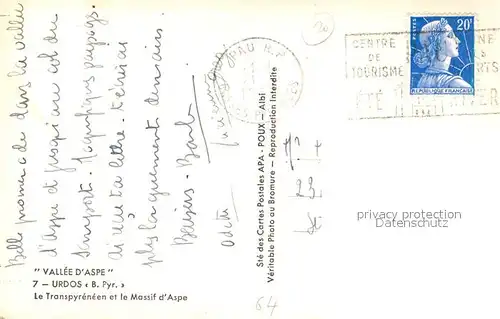 Belle promenade dans la vallée
d'Aspe et jusqu'au col du
Somport. Magnifiques paysages.
ai reçu ta lettre. t'écrirai
plus longuement demain.
Baisers. Bonb
Odette
" VALLÉE D'ASPE "
7 — URDOS « B. Pyr. »
Le Transpyrénéen et le Massif d'Aspe
Sté des Cartes Postales APA - POUX - Albi
Véritable Photo au Bromure — Reproduction Interdite
PAU R.P.
CENTRE
DE
TOURISME
ÉTÉ
POSTES
20F
REPUBLIQUE FRANÇAISE
20
64
privacy protection
Datenschutz